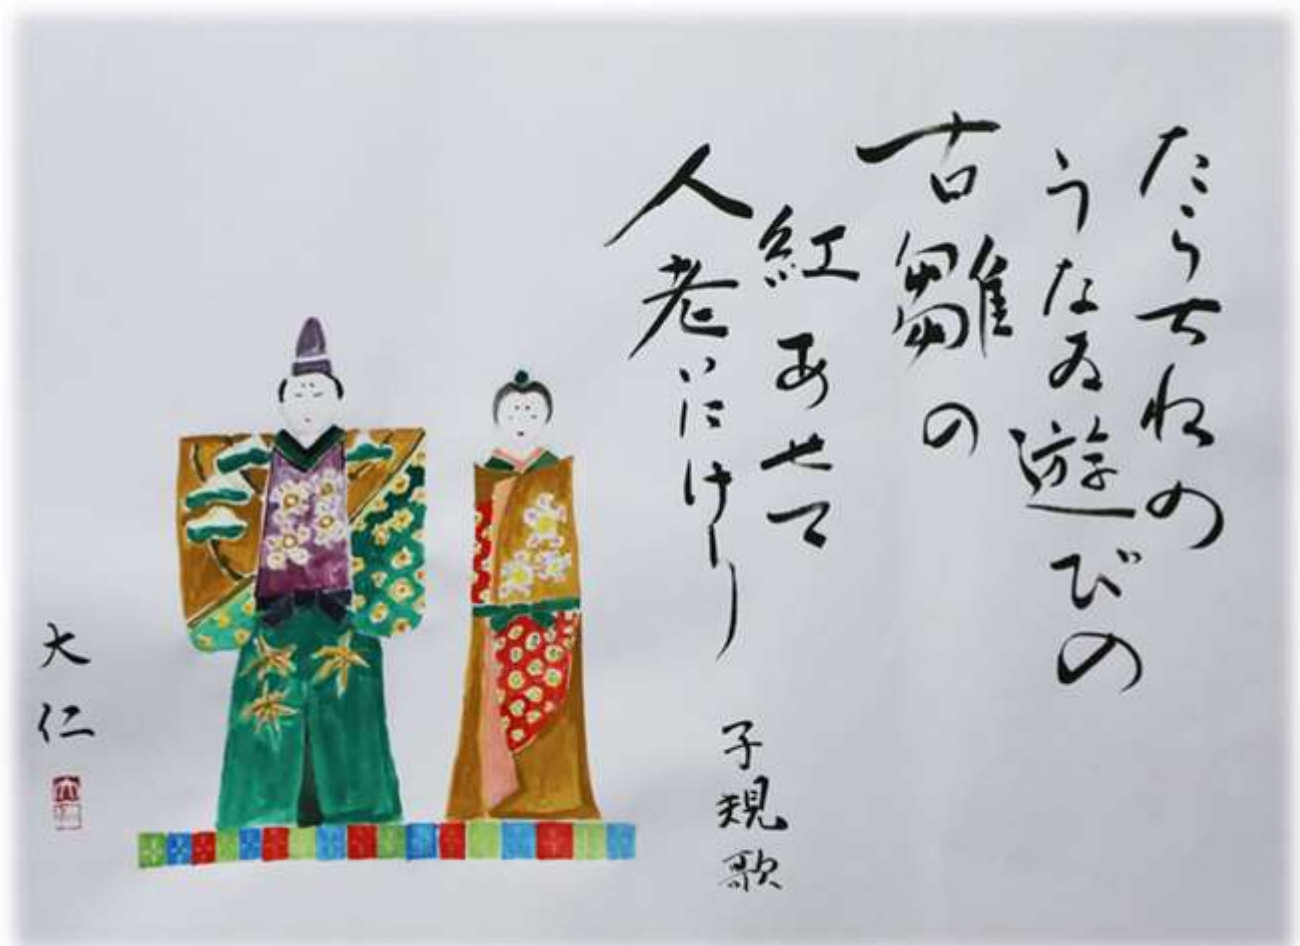 たらちねの
うなゐ遊びの
古雛の
紅あせて
人老いにけり
子規歌
大仁